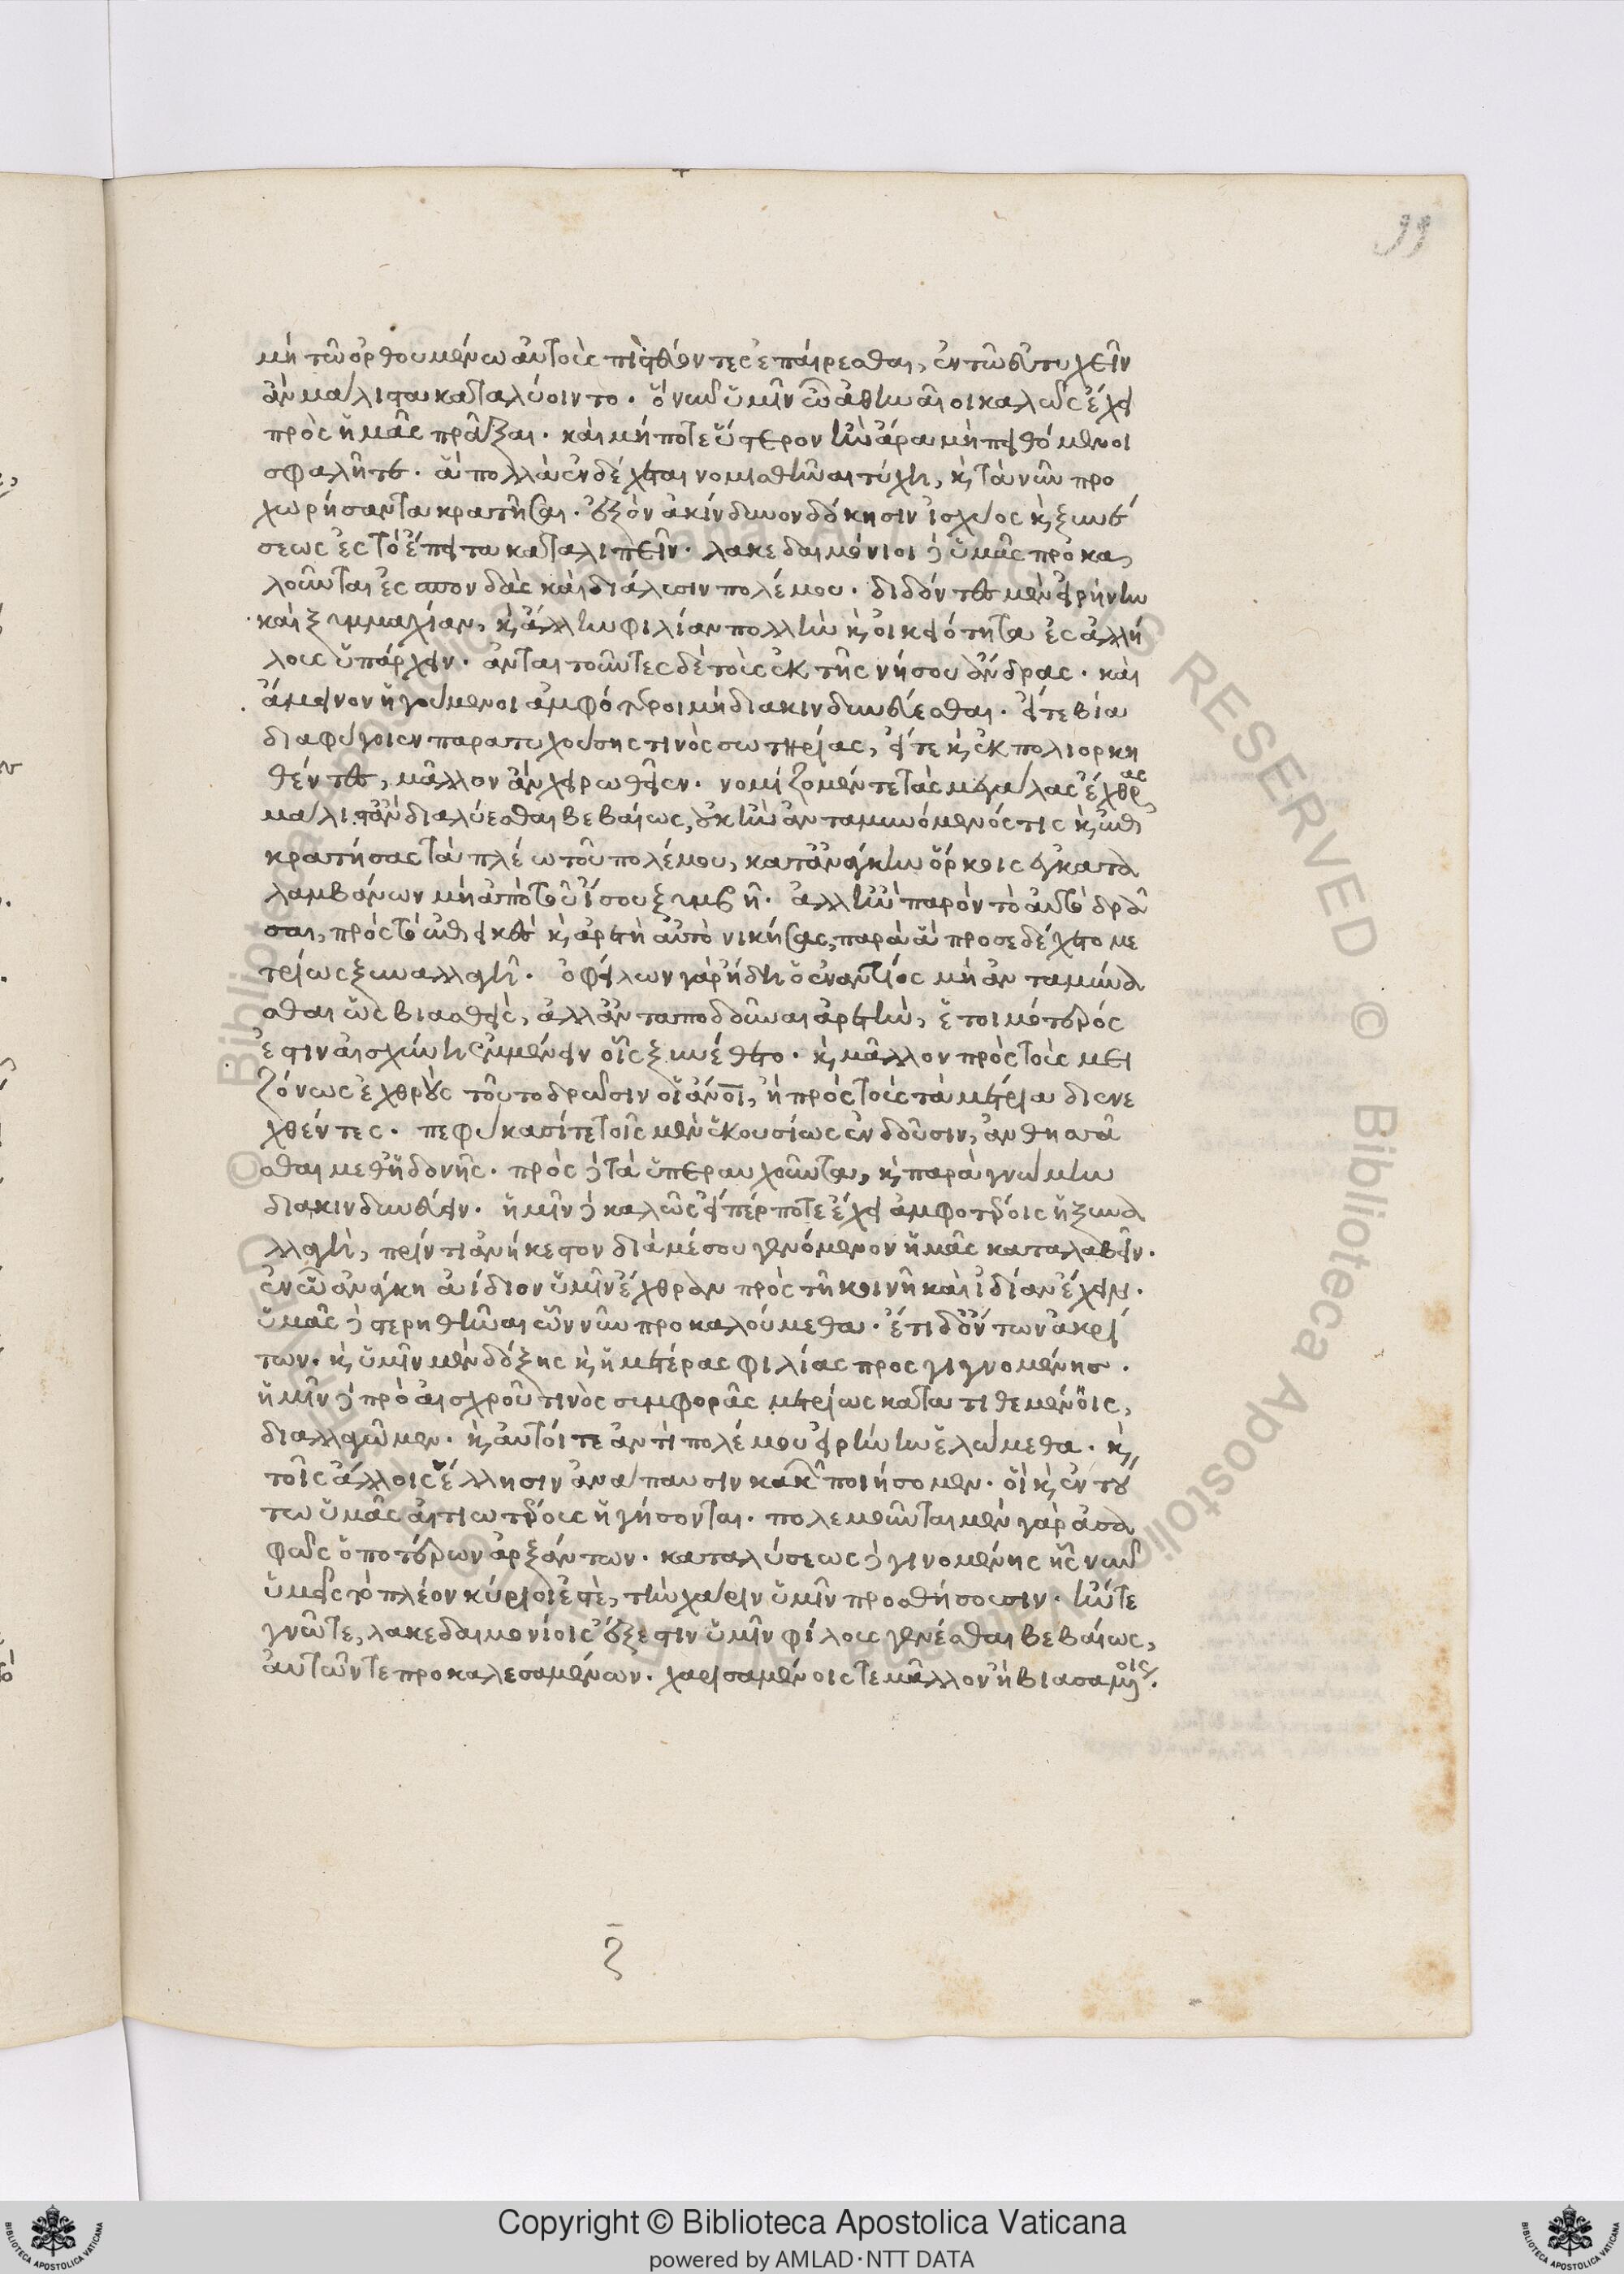 99
μὴ τῶ ὀρθουμένω αὐτοῖς πιστεύοντες ἐπαίρεσθαι, ἐν τῶ εὐτυχεῖν
ἂν μάλιστα καταλύοιντο. ὃ νῦν ὑμῖν ὦ ἀθηναῖοι καλῶς ἔχει
πρὸς ἡμᾶς πρᾶξαι. καὶ μήποτε ὕστερον ἢν ἄρα μὴ πειθόμενοι
σφαλῆτε. ἃ πολλὰ ἐνδέχεται νομισθῆναι τύχη, κ τὰ νῦν προ
χωρήσαντα κρατῆσαι. ἐξὸν ἀκίνδυνον δόκησιν ἰσχύος κ ξυνέ
σεως ἐς τὸ ἔπειτα καταλιπεῖν. λακεδαιμόνιοι δ ὑμᾶς προκα
λοῦνται ἐς σπονδὰς καὶ διάλυσιν πολέμου. διδόντες μὲν εἰρήνην
καὶ ξυμμαχίαν, κ ἄλλην φιλίαν πολλὴν κ οἰκειότητα ἐς ἀλλή
λους ὑπάρχειν. ἀνταιτοῦντες δὲ τοὺς ἐκ τῆς νήσου ἄνδρας. καὶ
ἄμεινον ἡγούμενοι ἀμφότεροι μὴ διακινδυνεύεσθαι. εἴτε βία
διαφύγοιεν παρατυχούσης τινὸς σωτηρίας, εἴτε κ ἐκπολιορκη
θέντες, μᾶλλον ἂν χειρωθεῖεν. νομίζομέν τε τὰς μεγάλας ἔχθρας
μάλιστ' ἂν διαλύεσθαι βεβαίως, οὐκ ἢν ἀνταμυνόμενός τις κ ἐπι
κρατήσας τὰ πλέω τοῦ πολέμου, κατ' ἀνάγκην ὅρκοις ἐγκατα
λαμβάνων μὴ ἀπὸ τοῦ ἴσου ξυμβῆ. ἀλλ' ἢν παρὸν τὸ αὐτὸ δρᾶ
σαι, πρὸς τὸ ἐπιεικὲς κ ἀρετῆ αὐτὸ νικήσας, παρὰ ἃ προσεδέχετο με
τρίως ξυναλλαγῆ. ὀφείλων γὰρ ἤδη ὁ ἐναντίος μὴ ἀνταμύνα
σθαι ὡς βιασθεὶς, ἀλλ' ἀνταποδοῦναι ἀρετὴν, ἑτοιμότερός
ἐστιν αἰσχύνη ἐμμένειν οἷς ξυνέθετο. κ μᾶλλον πρὸς τοὺς μει
ζόνως ἐχθροὺς τοῦτο δρῶσιν οἱ ἄνοι, ἢ πρὸς τοὺς τὰ μέτρια διενε
χθέντες. πεφύκασί τε τοῖς μὲν ἑκουσίως ἐνδοῦσιν, ἀνθησσᾶ
σθαι μεθ' ἡδονῆς. πρὸς δ τὰ ὑπεραυχοῦντα, κ παρὰ γνώμην
διακινδυνεύειν. ἡμῖν δ καλῶς εἴπέρ ποτε ἔχει ἀμφοτέροις ἡ ξυνα
λλαγὴ, πρίν τι ἀνήκεστον διὰ μέσου γενόμενον ἡμᾶς καταλαβεῖν.
ἐν ὧ ἀνάγκη ἀίδιον ὑμῖν ἔχθραν πρὸς τῆ κοινῆ καὶ ἰδίαν ἔχειν.
ὑμᾶς δ στερηθῆναι ὧν νῦν προκαλούμεθα. ἔτι δ' ὄντων ἀκρί
των. κ ὑμῖν μὲν δόξης κ ἡμετέρας φιλίας προσγιγνομένησ.
ἡμῖν δ πρὸ αἰσχροῦ τινὸς συμφορᾶς μετρίως κατατιθεμένοις,
διαλλαγῶμεν. κ αὐτοί τε ἀντὶ πολέμου εἰρήνην ἑλώμεθα. κ
τοῖς ἄλλοις ἕλλησιν ἀνάπαυσιν κακῶν ποιήσομεν. οἳ κ ἐν τού
τω ὑμᾶς αἰτιωτέρους ἡγήσονται. πολεμοῦνται μὲν γὰρ ἀσα
φῶς ὁποτέρων ἀρξάντων. καταλύσεως δ γινομένης ἧς νῦν
ὑμεῖς τὸ πλέον κύριοί ἐστὲ, τὴν χάριν ὑμῖν προσθήσουσιν. ἤν τε
γνῶτε, λακεδαιμονίοις ἔξεστιν ὑμῖν φίλους γενέσθαι βεβαίως,
αὐτῶν τε προκαλεσαμένων. χαρισαμένοις τε μᾶλλον ἢ βιασαμένοις.
ζ
Copyright © Biblioteca Apostolica Vaticana
powered by AMLAD·NTT DATA